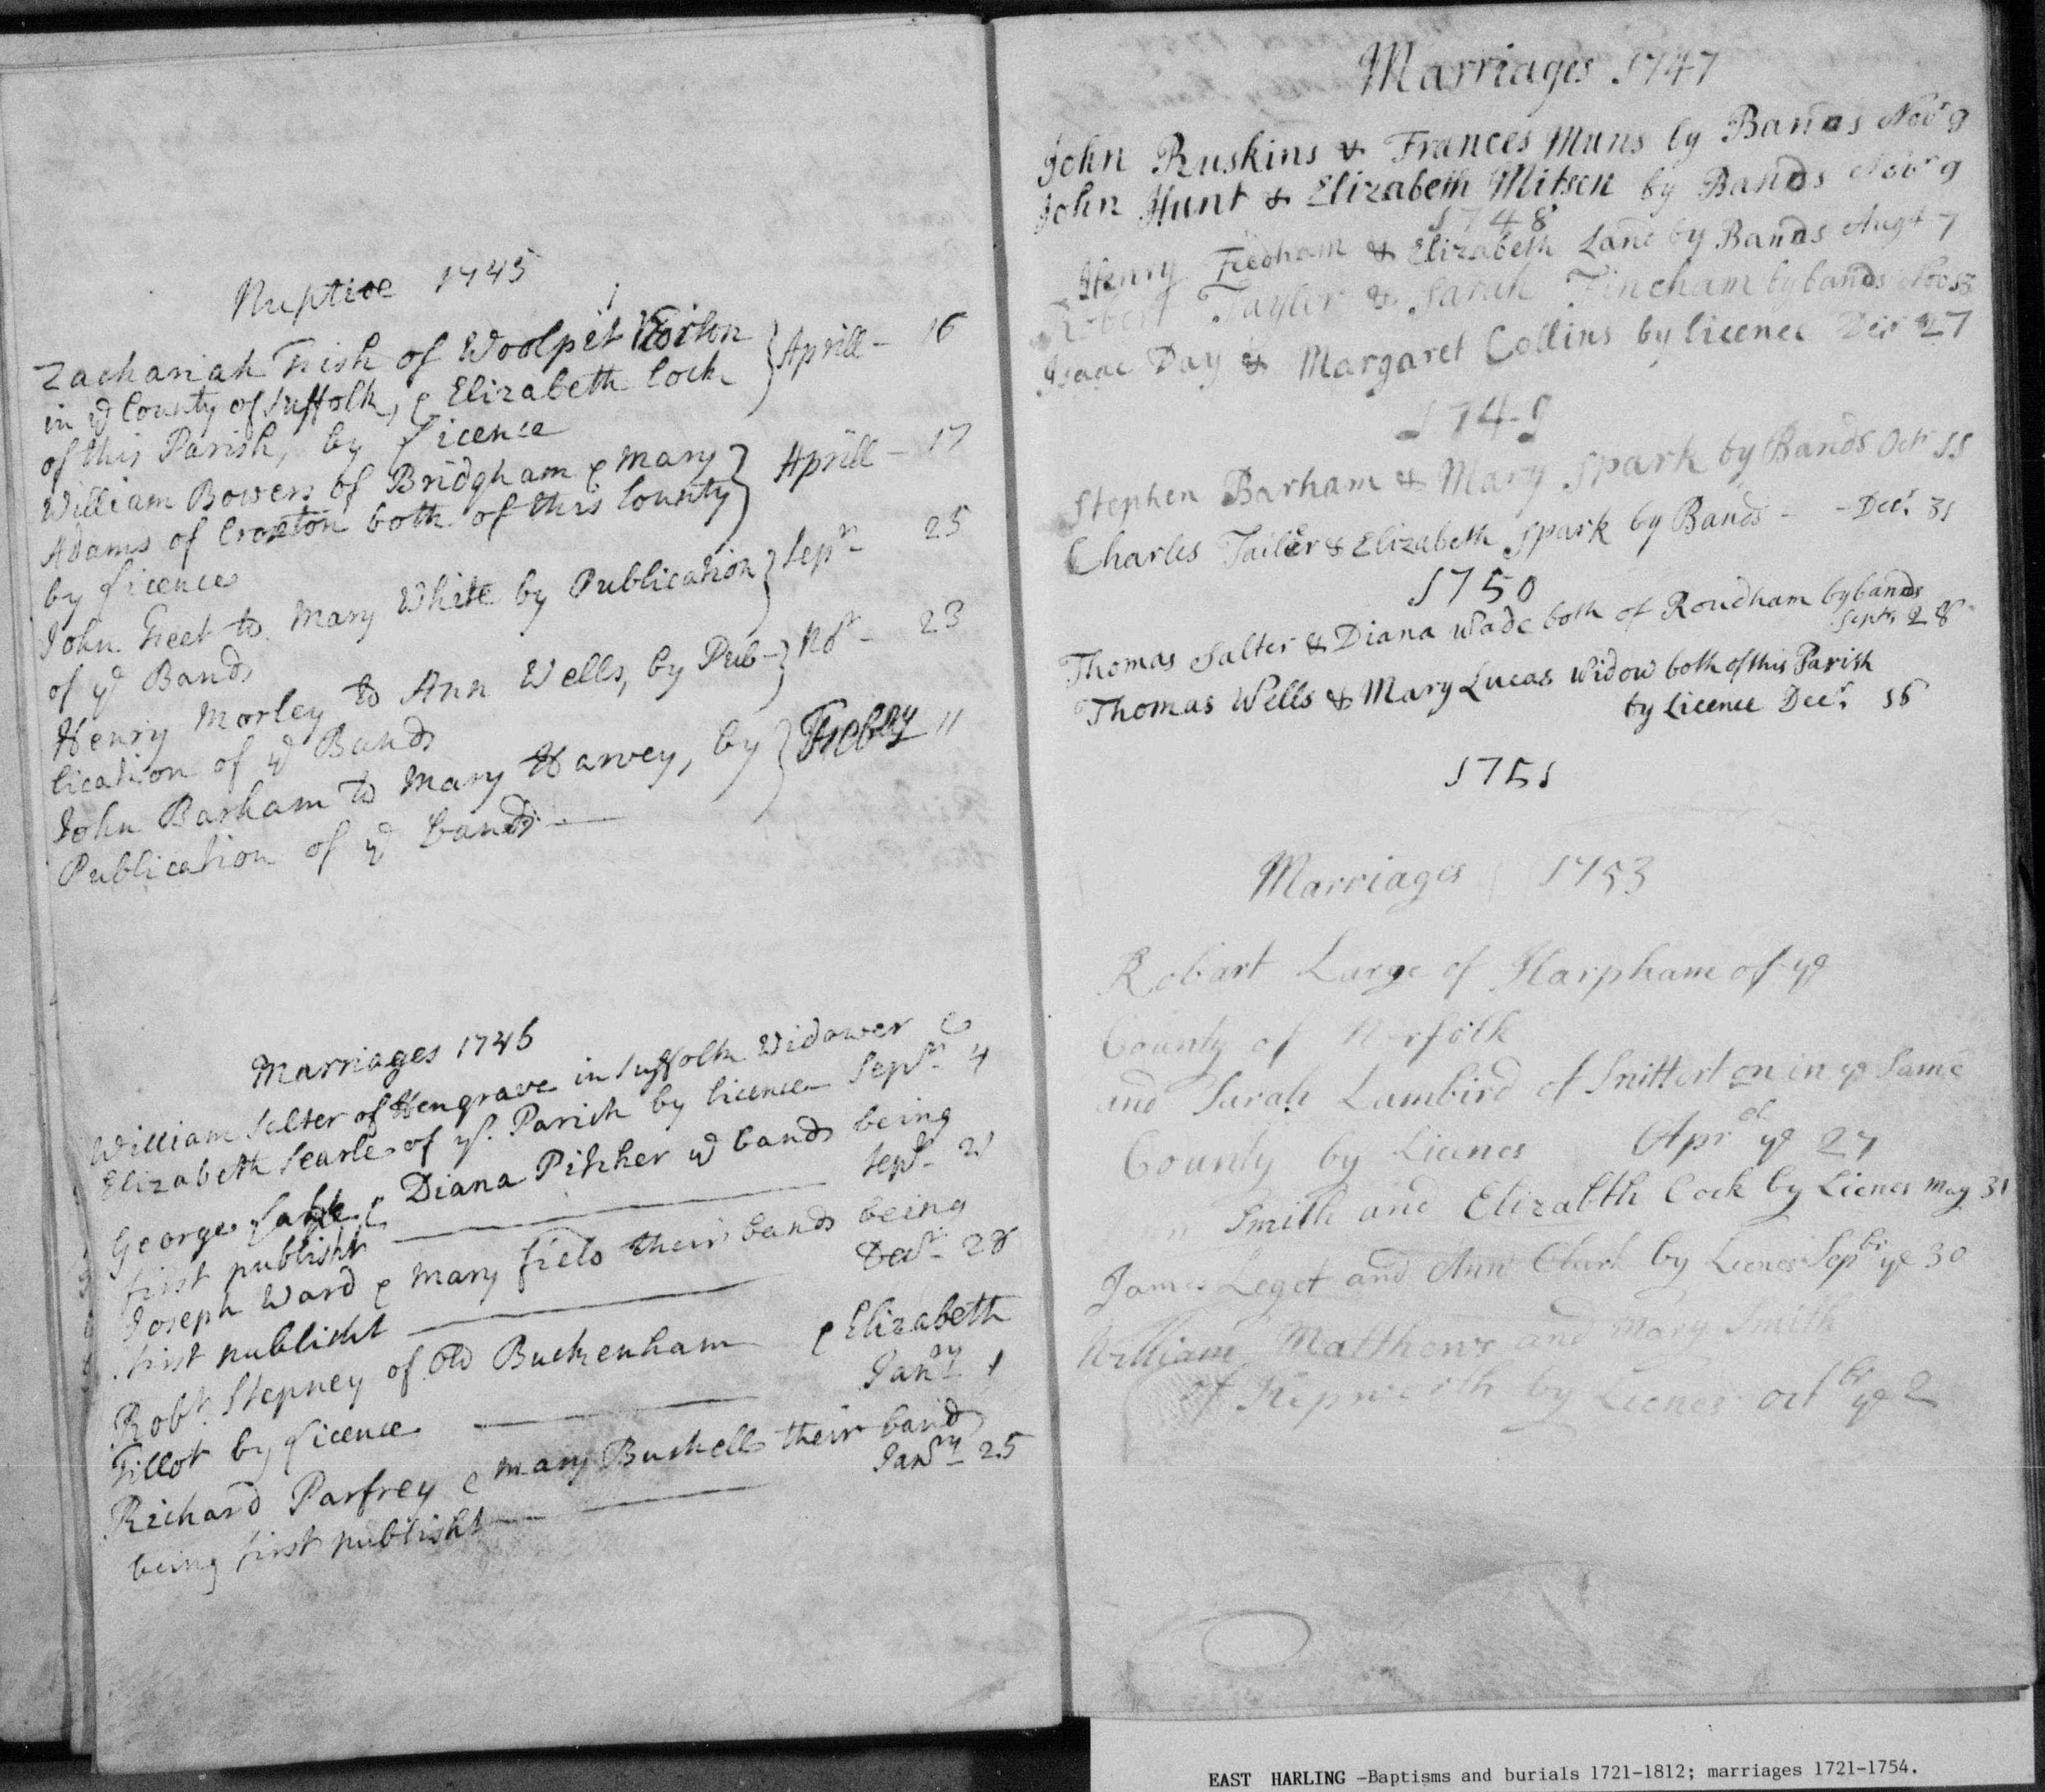 Nuptiæ 1745
Zachariah Frish of Woolpet
in ye County of Suffolk, & Elizabeth Cock
of this Parish, by Licence
Aprill - 16
William Bowers of Bridgham & Mary
Adams of Croxton both of this County
by Licence
Aprill - 17
John Freet to Mary White by Publication
of ye Bands
Sepr 25
Henry Morley to Ann Wells, by Pub-
lication of ye Bands
Nor - 23
John Barham to Mary Harvey, by
Publication of ye bands
Febry 11
Marriages 1746
William Salter of Hengrave in Suffolk Widower &
Elizabeth Searle of ys. Parish by licence Sepr 4
George & Diana Pitcher ye bands being
first publisht Sepr - 21
Joseph Ward & Mary field their bands being
first publisht Decr - 28
Robt. Stepney of Old Buckenham & Elizabeth
Tillot by Licence Janry 1
Richard Parfrey & Mary Bushell their bands
being first publisht Janry 25
Marriages 1747
John Ruskins & Frances Muns by Banns Novr 9
John Hunt & Elizabeth Mitson by Bands Novr 9
1748
Henry Feedham & Elizabeth Lane by Bands Augt 7
Robert Tayler & Sarah Fincham by bands Nov 13
Isaac Day & Margaret Collins by licence Decr 27
1749
Stephen Barham & Mary Spark by Bands Octr 11
Charles Tailer & Elizabeth Spark by Bands - - Decr. 31
1750
Thomas Salter & Diana Wade both of Roudham by bands
Septr 28
Thomas Wells & Mary Lucas Widow both of this Parish
by Licence Decr. 16
1751
Marriages 1753
Robart Large of Harpham of ye
County of Norfolk
and Sarah Lambird of Snitterton in ye Same
County by Licnes Aprel ye 27
Smith and Elizabth Cock by Licnes May 31
James Leget and Ann Clark by Licnes Sepbr ye 30
William Matthews and Mary Smith
of Hepworth by Licnes octbr ye 2
EAST HARLING -Baptisms and burials 1721-1812; marriages 1721-1754.